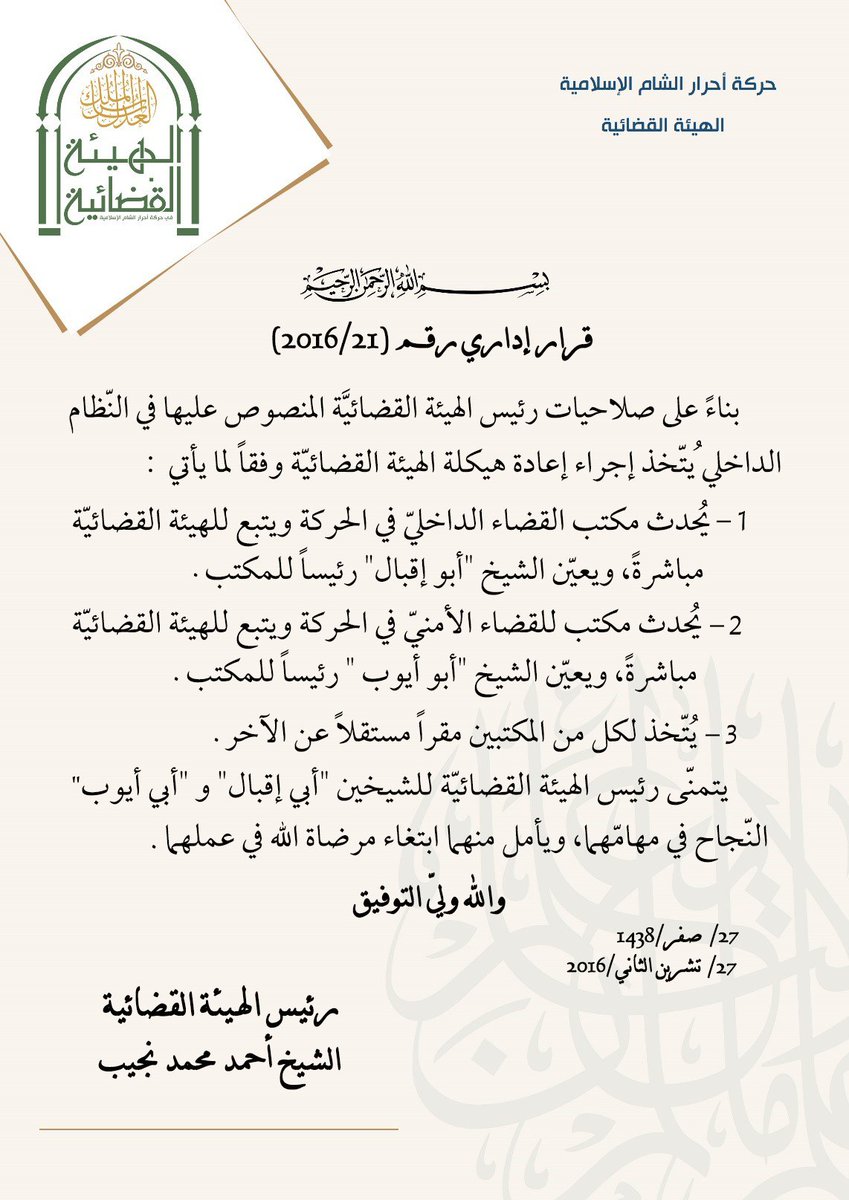 حركة أحرار الشام الإسلامية
الهيئة القضائية
الهيئة
القضائية
في حركة أحرار الشام الإسلامية
بسم الله الرحمن الرحيم
قرار إداري رقم (2016/21)
بناءً على صلاحيات رئيس الهيئة القضائيَّة المنصوص عليها في النّظام
الداخلي ُيتّخذ إجراء إعادة هيكلة الهيئة القضائيّة وفقاً لما يأتي :
1- يُحدث مكتب القضاء الداخليّ في الحركة ويتبع للهيئة القضائيّة
مباشرةً، ويعيّن الشيخ "أبو إقبال" رئيساً للمكتب .
2- يُحدث مكتب للقضاء الأمنيّ في الحركة ويتبع للهيئة القضائيّة
مباشرةً، ويعيّن الشيخ "أبو أيوب " رئيساً للمكتب .
3- يُتّخذ لكل من المكتبين مقراً مستقلاً عن الآخر .
يتمنّى رئيس الهيئة القضائيّة للشيخين "أبي إقبال" و "أبي أيوب"
النّجاح في مهامّهما، ويأمل منهما ابتغاء مرضاة الله في عملهما .
والله وليّ التوفيق
27/ صفر/1438
27/ تشرين الثاني/2016
رئيس الهيئة القضائية
الشيخ أحمد محمد نجيب